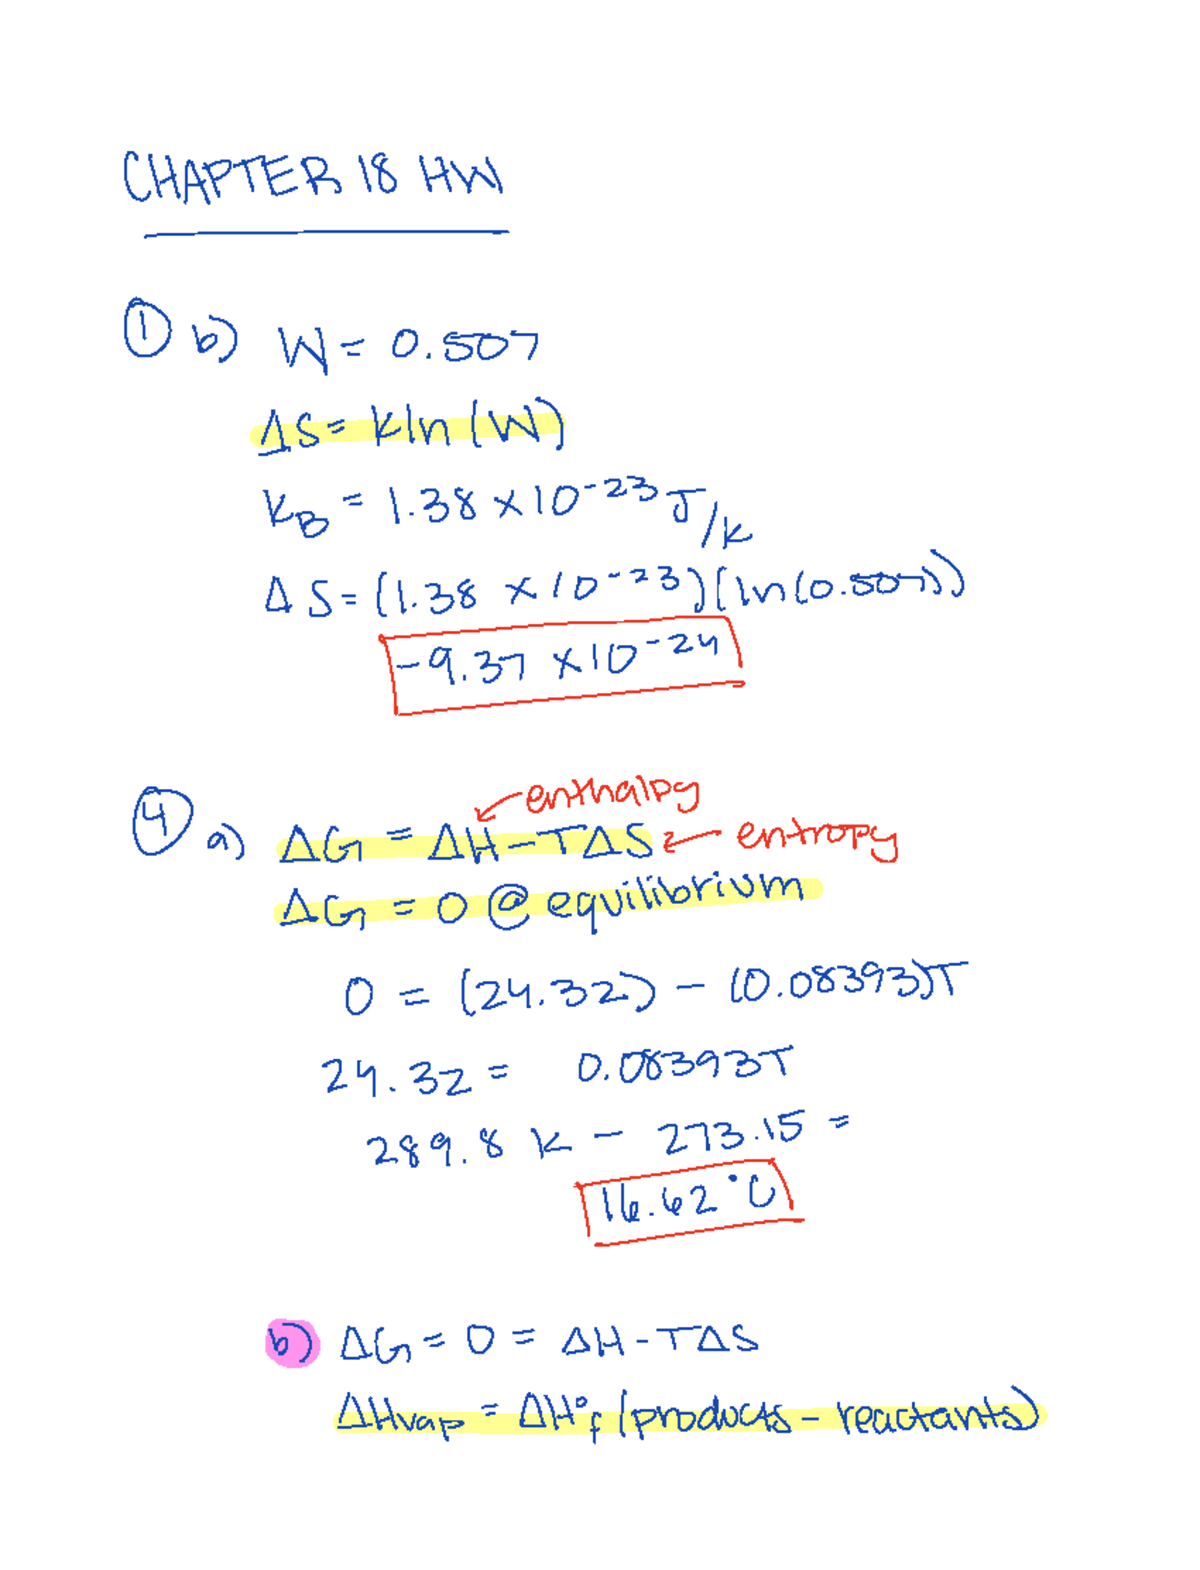 CHAPTER 18 HW
① b) W = 0.507
ΔS = kln(W)
KB = 1.38 x10⁻²³ J/K
ΔS = (1.38 x10⁻²³)(ln(0.507))
-9.37 x10⁻²⁴
enthalpy
④ a) ΔG = ΔH-TΔS ← entropy
ΔG = 0 @ equilibrium
0 = (24.32) - (0.08393)T
24.32 = 0.08393T
289.8 K - 273.15 =
16.62°C
b) ΔG = 0 = ΔH-TΔS
ΔHvap = ΔH°f (products - reactants)